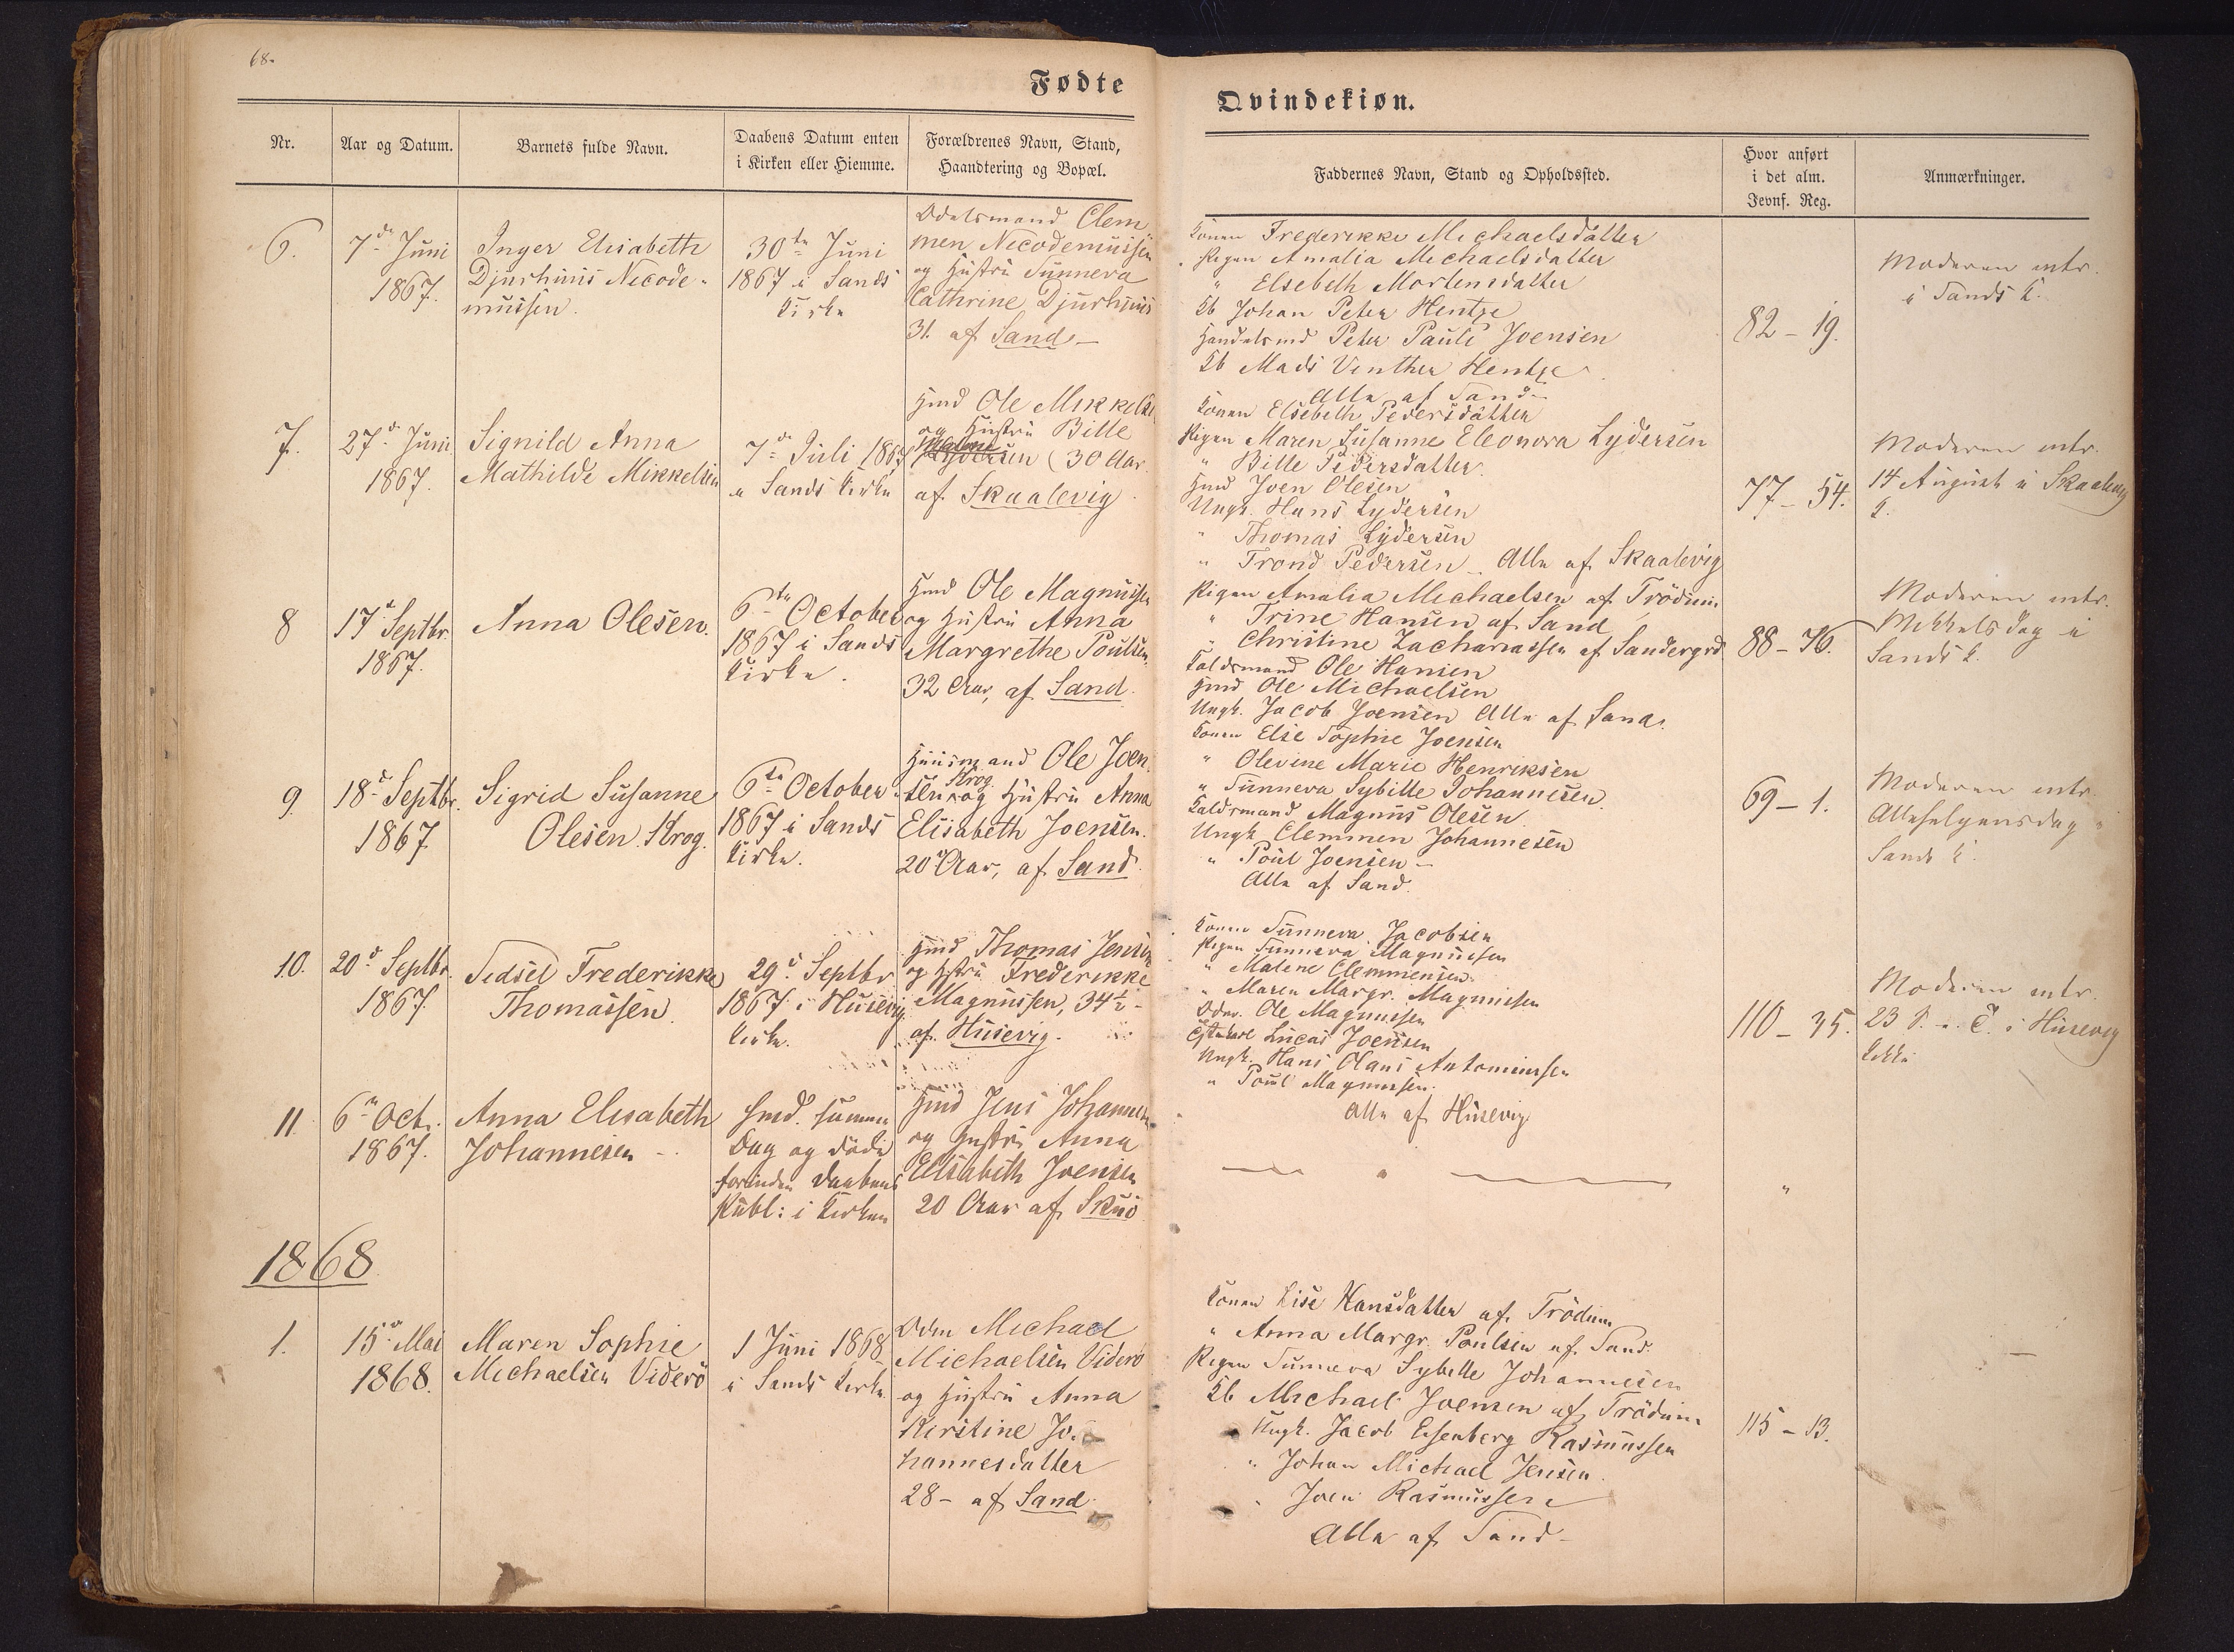 68.
Fødte
Qvindekiøn.
Nr.
Aar og Datum.
Barnets fulde Navn.
Daabens Datum enten
i Kirken eller Hiemme.
Forældrenes Navn, Stand,
Haandtering og Bopæl.
Faddernes Navn, Stand og Opholdssted.
Hvor anført
i det alm.
Jevnf. Reg.
Anmærkninger.
6.
7de Juni
1867.
Inger Elisabeth
Djurhuus Nicode-
mussen.
30te Juni
1867 i Sands
Kirke
Odelsmand Clem
men Nicodemussen
og Hustru Sunneva
Cathrine Djurhuus
31. af Sand
Konen Frederikke Michaelsdatter
Pigen Amalia Michaelsdatter
" Elsebeth Mortensdatter
Kb Johan Peter Hentze
Handelsmd Peter Pauli Joensen
Kb Mads Vinther Hentze
Alle af Sand
82 - 19.
Moderen intr.
i Sands K.
7.
27de Juni
1867.
Signild Anna
Mathilde Mikkelsen
7de Juli 1867
i Sands Kirke
Hmd Ole Mikkels
og Hustru Bille
Lydersen (30 Aar
af Skaalevig
Konen Elsebeth Pedersdatter
Pigen Maren Susanne Eleonora Lydersen
" Bille Pedersdatter
Hmd Joen Olesen
Ungk. Hans Lydersen
" Thomas Lydersen
" Trond Pedersen Alle af Skaalevig
77 - 54.
Moderen intr.
14 August i Skaalevig
K.
8
17de Septbr.
1867.
Anna Olesen.
6te October
1867 i Sands
Kirke.
Hmd Ole Magnussen
og Hustru Anna
Margrethe Poulsen
32 Aar, af Sand.
Pigen Amalia Michaelsen af Trödum
" Trine Hansen af Sand
" Christine Zachariassen af Sandergrd
Kaldsmand Ole Hansen
Hmd Ole Michaelsen
Ungk. Jacob Joensen Alle af Sand.
88 - 76.
Moderen intr.
Mikkelsdag i
Sands K.
9.
18de Septbr.
1867
Sigrid Susanne
Olesen Krog.
6te October
1867 i Sands
Kirke.
Huusmand Ole Joen
Krog
sen og Hustru Anna
Elisabeth Joensen.
20 Aar, af Sand
Konen Else Sophie Joensen
" Olevine Marie Henriksen
" Sunneva Sybille Johannesen
Kaldsmand Magnus Olesen
Ungk Clemmen Johannesen
" Poul Joensen
Alle af Sand.
69 - 1.
Moderen intr.
Allehelgensdag i
Sands K.
10.
20de Septbr.
1867
Sidsel Frederikke
Thomassen
29de Septbr
1867 i Husevig
Kirke.
Hmd Thomas Jensen
og Hstru Frederikke
Magnussen, 34½
af Husevig.
Konen Sunneva Jacobsen
Pigen Sunneva Magnussen
" Malene Clemmensen
" Maren Margr. Magnussen
Odm. Ole Magnussen
Lucas Joensen
Ungk. Hans Olaus Antoniussen
" Poul Magnussen.
Alle af Husevig
110 - 35.
Moderen intr.
23 S. e. T. i Husevig
Kirke
11
6te Oct.
1867.
Anna Elisabeth
Johannesen
hmd. samme
Dag og döde
forinden Daabens
Publ: i Kirken
Hmd Jens Johannesen
og Hustru Anna
Elisabeth Joensen
20 Aar af Skuö
"
1868
1.
15de Mai
1868.
Maren Sophie
Michaelsen Viderö
1 Juni 1868
i Sands Kirke
Odm Michael
Michaelsen Viderö
og Hustru Anna
Kirstine Jo-
hannesdatter
28 - af Sand
Konen Lise Hansdatter af Trödum
" Anna Margr. Poulsen af Sand.
Pigen Sunneva Sybille Johannesen
Kb Michael Joensen af Trödum
Ungk. Jacob Esenberg Rasmussen
" Johan Michael Jensen
" Joen Rasmussen
Alle af Sand
115 - 13.